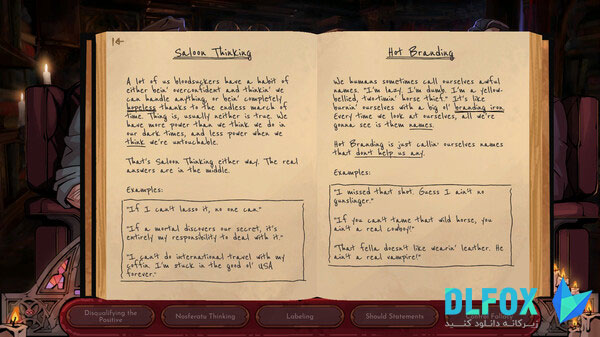 Saloon Thinking
A lot of us bloodsuckers have a habit of
either bein' overconfident and thinkin' we
can handle anything, or bein' completely
hopeless thanks to the endless march of
time. Thing is, usually neither is true. We
have more power than we think we do in
our dark times, and less power when we
think we're untouchable.
That's Saloon Thinking either way. The real
answers are in the middle.
Examples:
"If I can't lasso it, no one can."
"If a mortal discovers our secret, it's
entirely my responsibility to deal with it."
"I can't do international travel with my
coffin. I'm stuck in the good ol' USA
forever."
Hot Branding
We humans sometimes call ourselves awful
names. "I'm lazy. I'm dumb. I'm a yellow-
bellied, two-timin' horse thief." It's like
burnin' ourselves with a big ol' branding iron.
Every time we look at ourselves, all we're
gonna see is them names.
Hot Branding is just callin' ourselves names
that don't help us any.
Examples:
"I missed that shot. Guess I ain't no
gunslinger."
"If you can't tame that wild horse, you
ain't a real cowboy!"
"That fella doesn't like wearin' leather. He
ain't a real vampire!"
Disqualifying the
Positive
Nosferatu Thinking
Labeling
Should Statements
Control Fallacy
DLFOX
زیرکانه دانلود کنید